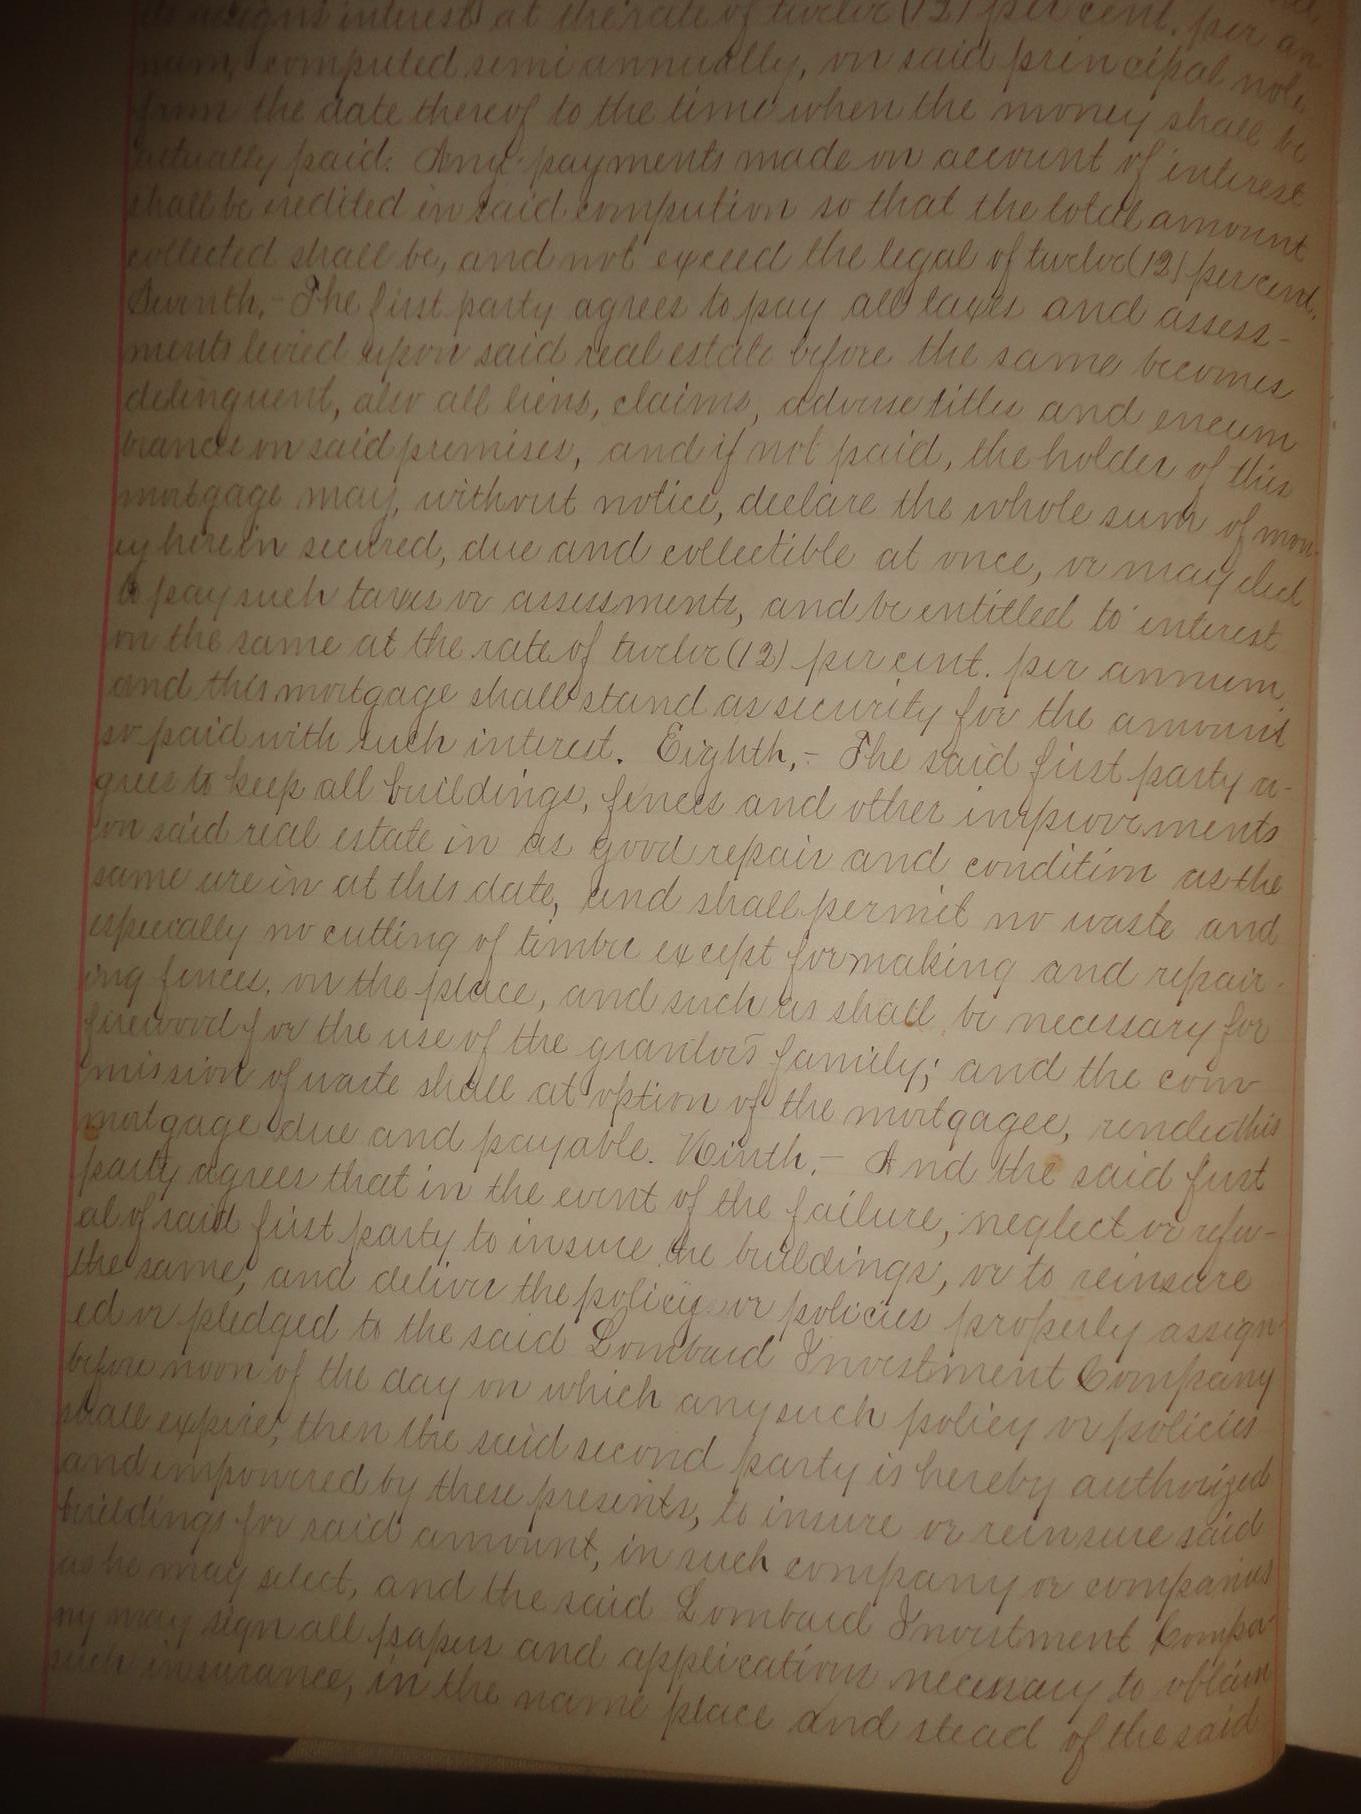 assigns interest at the rate of twelve (12) per cent. per an
num, computed semi annually, on said principal note
from the date thereof to the time when the money shall be
actually paid. Any payments made on account of interest
shall be credited in said compution so that the total amount
collected shall be, and not exceed the legal of twelve (12) per cent.
Seventh,- The first party agrees to pay all taxes and assess-
ments levied upon said real estate before the same becomes
delinquent, also all liens, claims, adverse titles and encum
brances on said premises, and if not paid, the holder of this
mortgage may, without notice, declare the whole sum of mon-
ey herein secured, due and collectible at once, or may elect
to pay such taxes or assessments, and be entitled to interest
on the same at the rate of twelve (12) per cent. per annum,
and this mortgage shall stand as security for the amount
so paid with such interest. Eighth,- The said first party a-
grees to keep all buildings, fences and other improvements
on said real estate in as good repair and condition as the
same are in at this date, and shall permit no waste and
especially no cutting of timbre except for making and repair-
ing fences, on the place, and such as shall be necessary for
firewood for the use of the grantor's family; and the com
mission of waste shall at option of the mortgagee, render this
mortgage due and payable. Ninth,- And the said first
party agrees that in the event of the failure, neglect or refu-
al of said first party to insure the buildings, or to reinsure
the same, and deliver the policy or policies properly assign-
ed or pledged to the said Lombard Investment Company
before noon of the day on which any such policy or policies
shall expire, then the said second party is hereby authorized
and empowered by these presents, to insure or reinsure said
buildings for said amount, in such company or companies
as he may select, and the said Lombard Investment Compa-
ny may sign all papers and applications necessary to obtain
such insurance, in the name place and stead of the said